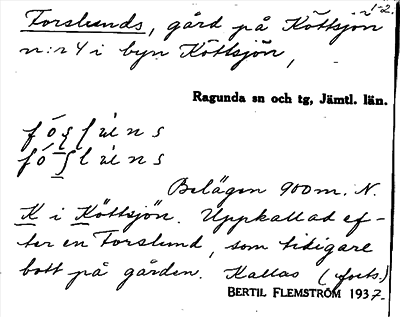 Forslunds, gård på Köttsjön 1-2.
n:r 4 i byn Köttsjön,
Ragunda sn och tg, Jämtl. län.
Belägen 900 m. N.
K i Köttsjön. Uppkallad ef-
ter en Forslund, som tidigare
bott på gården. Kallas (forts.)
BERTIL FLEMSTRÖM 1937.